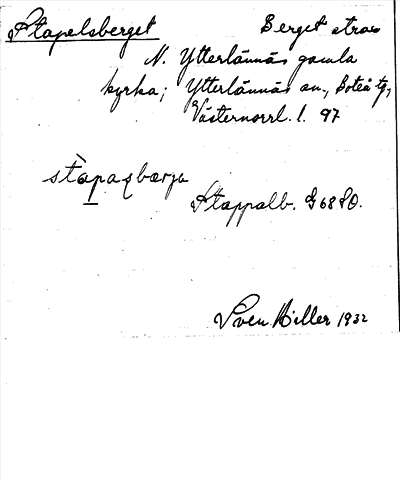 Stapelsberget Berget strax
N. Ytterlännäs gamla
kyrka; Ytterlännäs sn., Boteå tg,
Västernorrl. l. 97
stàpaɋbærja
Stappalb. G 68 SO.
Sven Hiller 1932